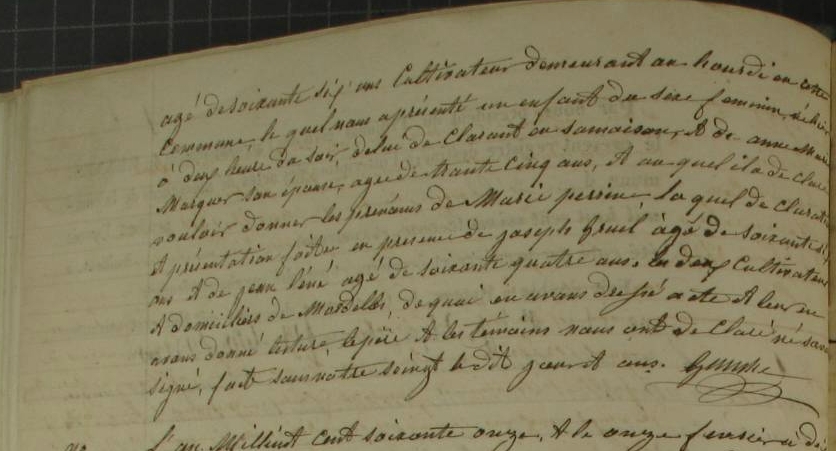 agé de soixante six ans Cultivateur demeurant au hourdé en cette
Commune, le quel nous a présenté un enfant du sexe feminin, né hier
à deux heure du soir, de lui de Clarant en sa maison, et de anne Marie
Marquer son épouse, agee de trante Cinq ans, et au quel il a de claré
vouloir donner les prénoms de Marie perrine la quel de claration
et présentation faite en presence de joseph fruel âgé de soixante six
ans et de jean Péné agé de soixante quatre ans. les deux Cultivateurs
et domiciliés de Mordelles, de quoi en avons dressé acte et leur en
avons donné lecture, le père et les témoins nous ont de Claré ne savoir
signé, fait sous notre seingt le dit jour et ans.
L'an Mil huit cent soixante onze, et le onze fevrier à